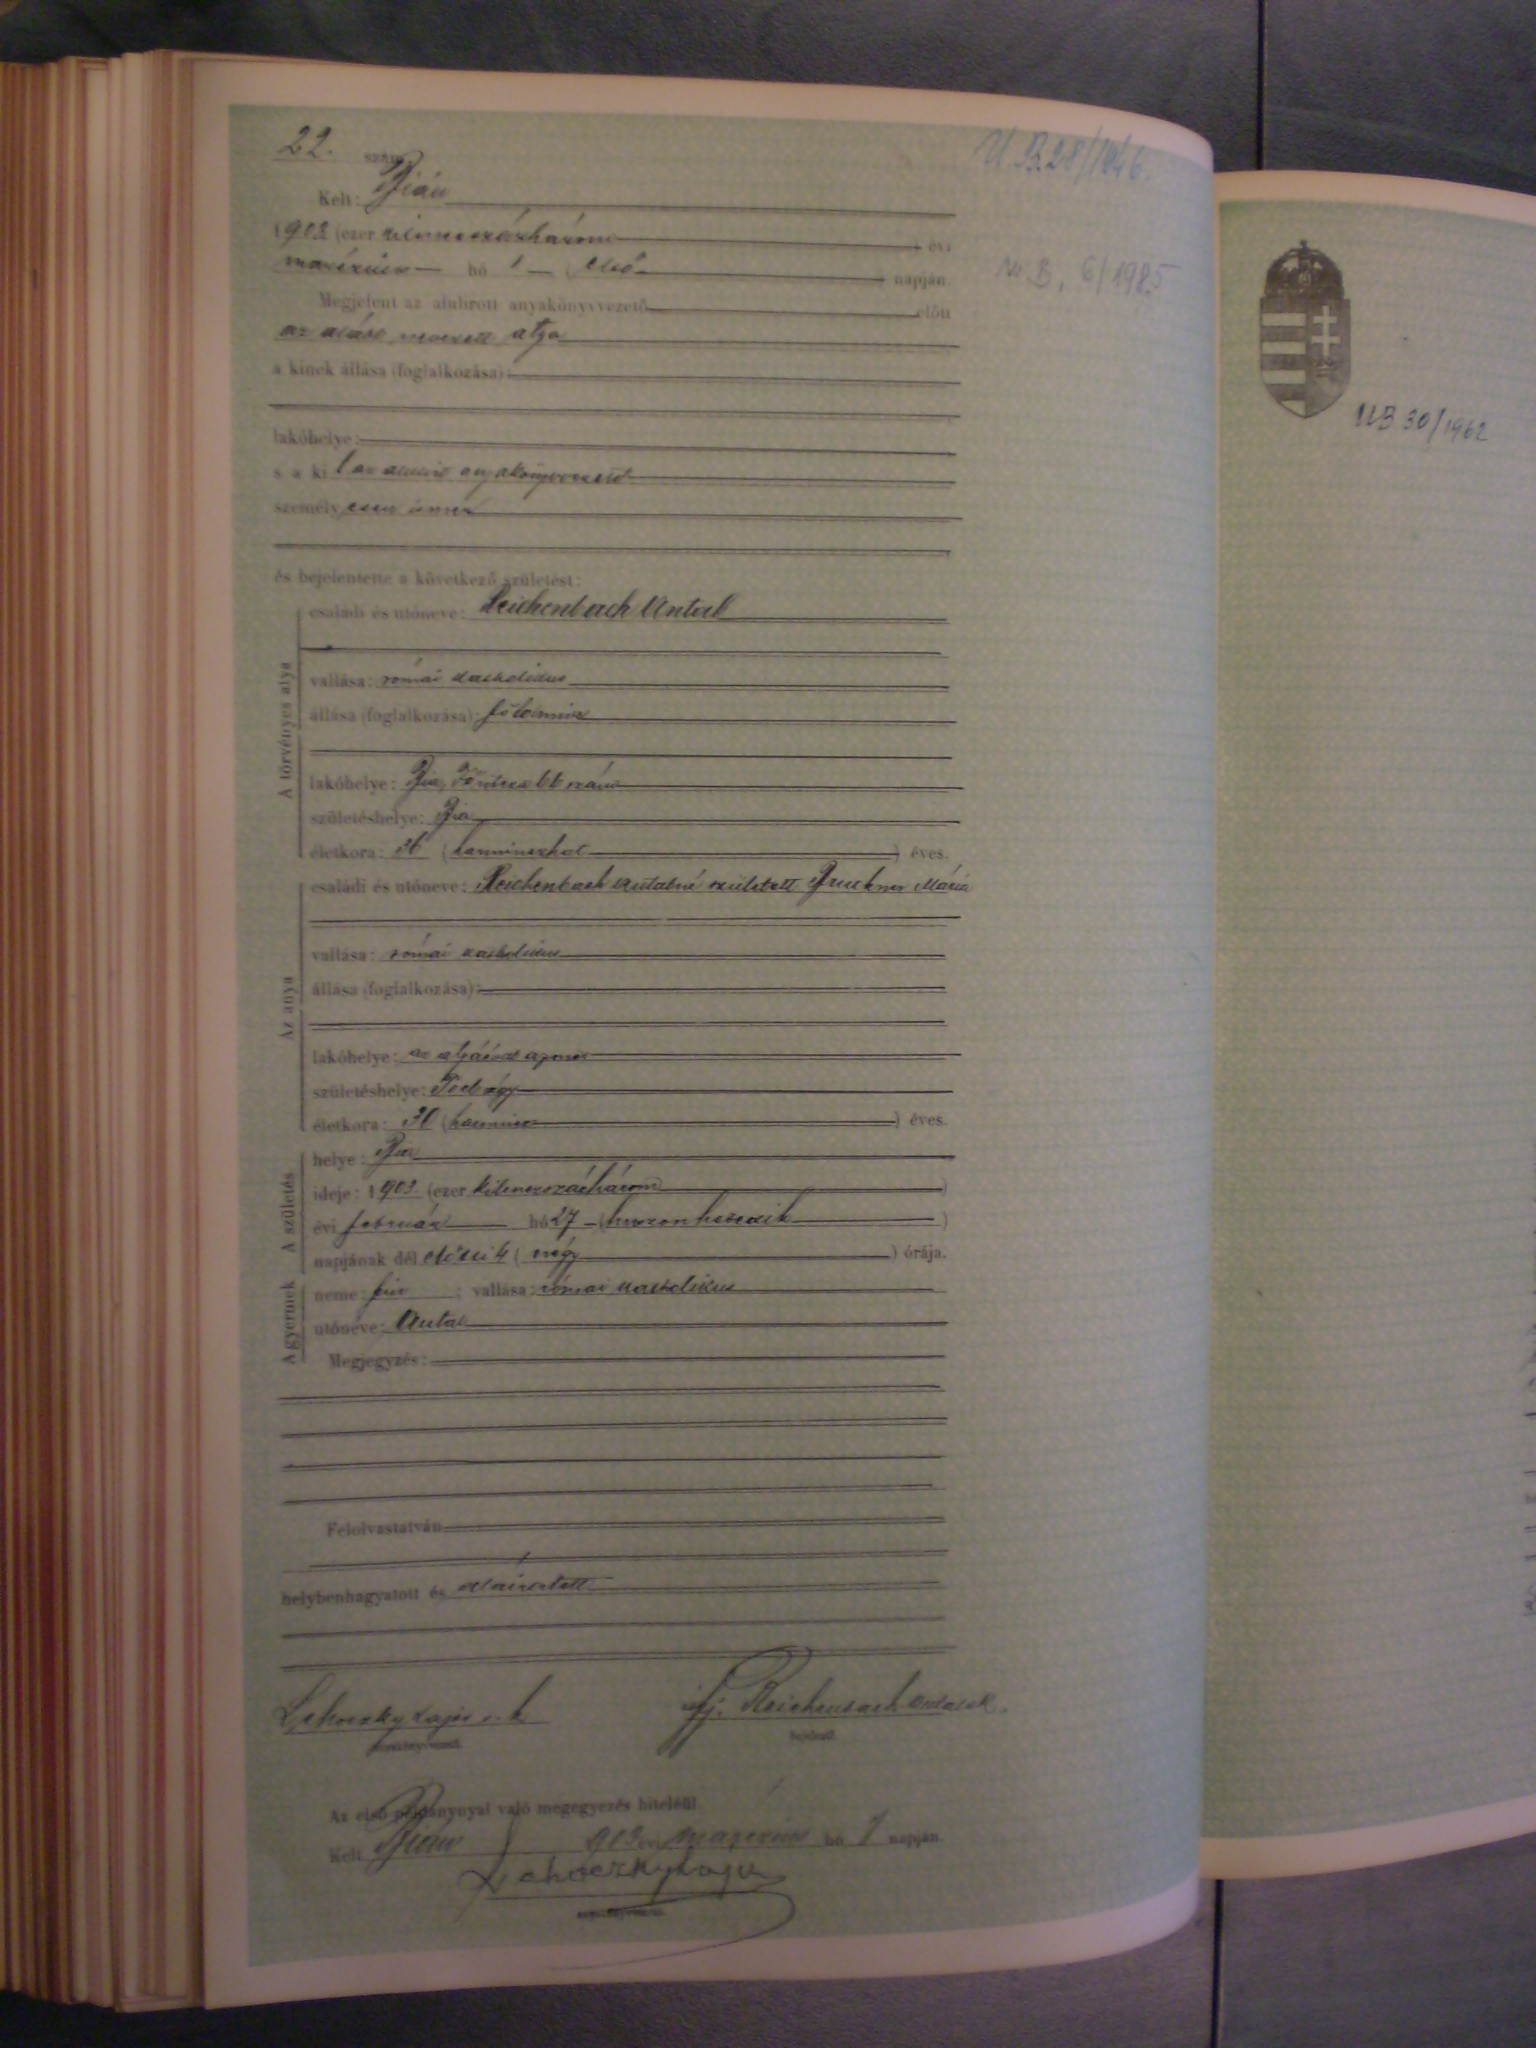 22. szám.
U. B. 28/1946.
Kelt: Bián
1903 (ezer kilenczszázhárom) évi
márczius hó 1 (első) napján.
U. B. 6/1985
Megjelent az alulirott anyakönyvvezető előtt
az alább nevezett atya
a kinek állása (foglalkozása):
lakóhelye:
s a kit az alulirt anyakönyvvezető
személyesen ismer
és bejelentette a következő születést:
A törvényes atya
családi és utóneve: Reichenbach Antal
vallása: római katholikus
állása (foglalkozása): földmives
lakóhelye: Bia, Főutcza szám
születéshelye: Bia
életkora: 36 (harminczhat) éves.
Az anya
családi és utóneve: Reichenbach Antalné született Bruckner Mária
vallása: római katholikus
állása (foglalkozása):
lakóhelye: az atyáéval azonos
születéshelye: Torbágy
életkora: 30 (harmincz) éves.
A születés
helye: Bia
ideje: 1903 (ezer kilenczszázhárom)
évi február hó 27 (huszonhetedik)
napjának dél előtti 4 (négy) órája.
A gyermek
neme: fiu ; vallása: római katholikus
utóneve: Antal
Megjegyzés:
Felolvastatván
helybenhagyatott és aláiratott
Lehoczky Lajos s. k. ifj. Reichenbach Antal s. k.
anyakönyvvezető. bejelentő.
Az első példánynyal való megegyezés hiteléül.
Kelt Bián 1903 évi márczius hó 1 napján.
Lehoczky Lajos
anyakönyvvezető.
UB 30/1962